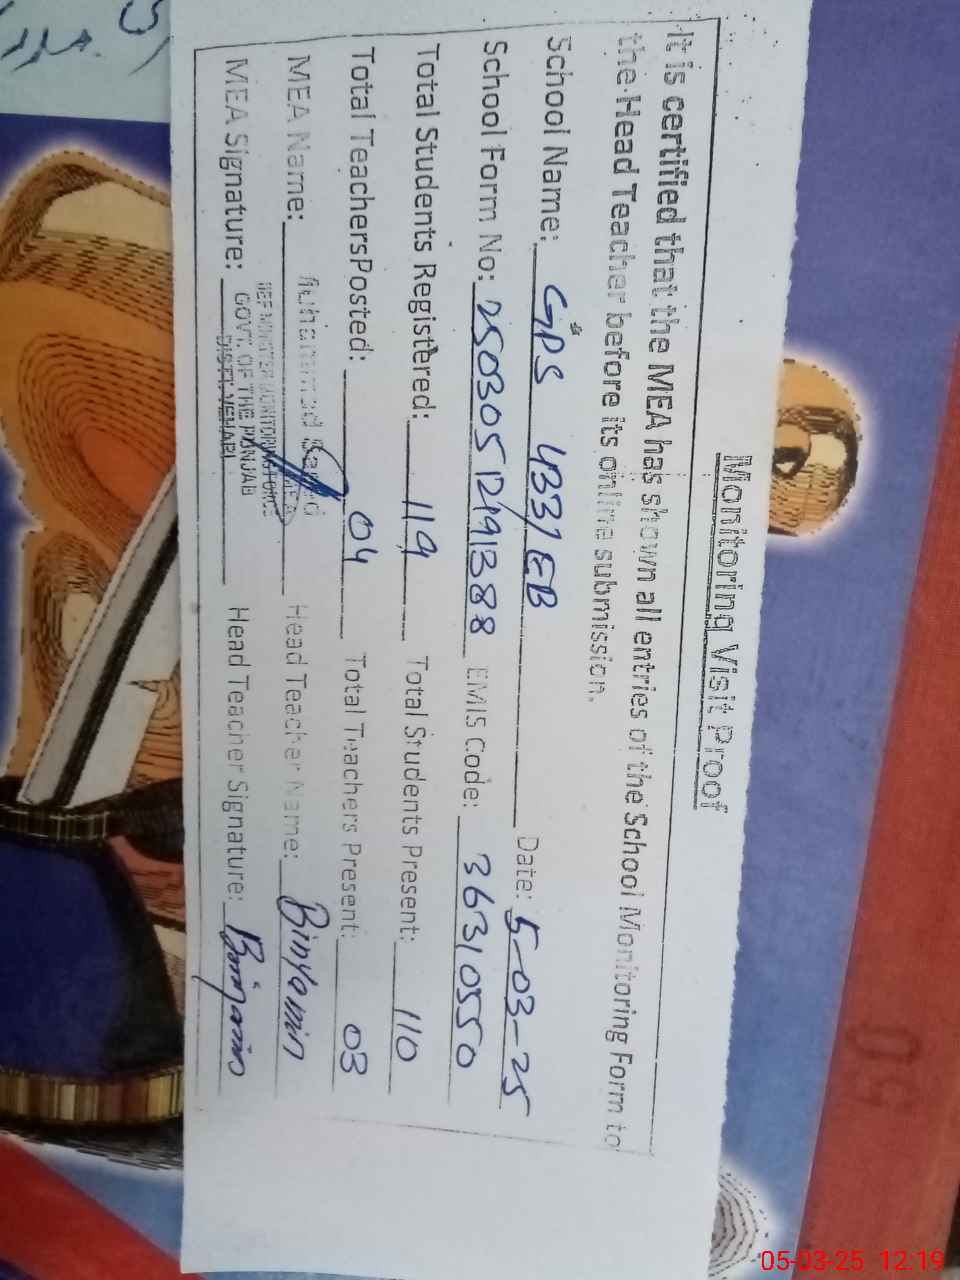 Monitoring Visit Proof
It is certified that the MEA has shown all entries of the School Monitoring Form to
the Head Teacher before its online submission.
School Name: GPS 433/EB Date: 5-03-25
School Form No: 25030512191388 EMIS Code: 36310550
Total Students Registered: 119 Total Students Present: 110
Total TeachersPosted: 04 Total Teachers Present: 03
MEA Name: Muhammad Head Teacher Name: Binyamin
MEA Signature: Head Teacher Signature: Binyamin
GOVT. OF THE PUNJAB
DISTT. VEHARI
05-03-25 12:19